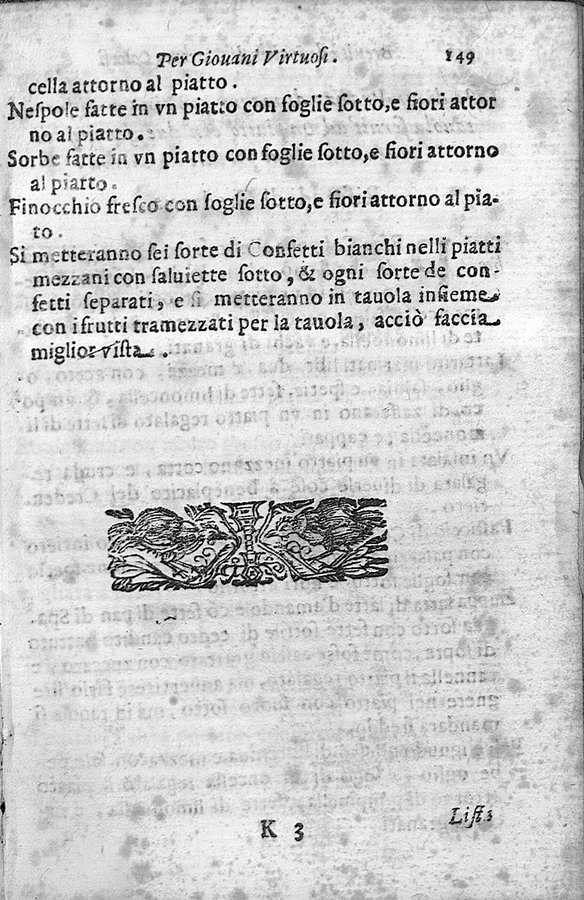 Per Giouani Virtuoſi. 149
cella attorno al piatto.
Neſpole fatte in vn piatto con foglie ſotto,e fiori attor
no al piatto.
Sorbe fatte in vn piatto con foglie ſotto,e fiori attorno
al piatto.
Finocchio freſco con foglie ſotto,e fiori attorno al pia-
to.
Si metteranno ſei ſorte di Confetti bianchi nelli piatti
mezzani con ſaluiette ſotto, & ogni ſorte de con-
fetti ſeparati, e ſi metteranno in tauola inſieme
con i frutti tramezzati per la tauola, acciò faccia
miglior viſta.
K 3
Liſt